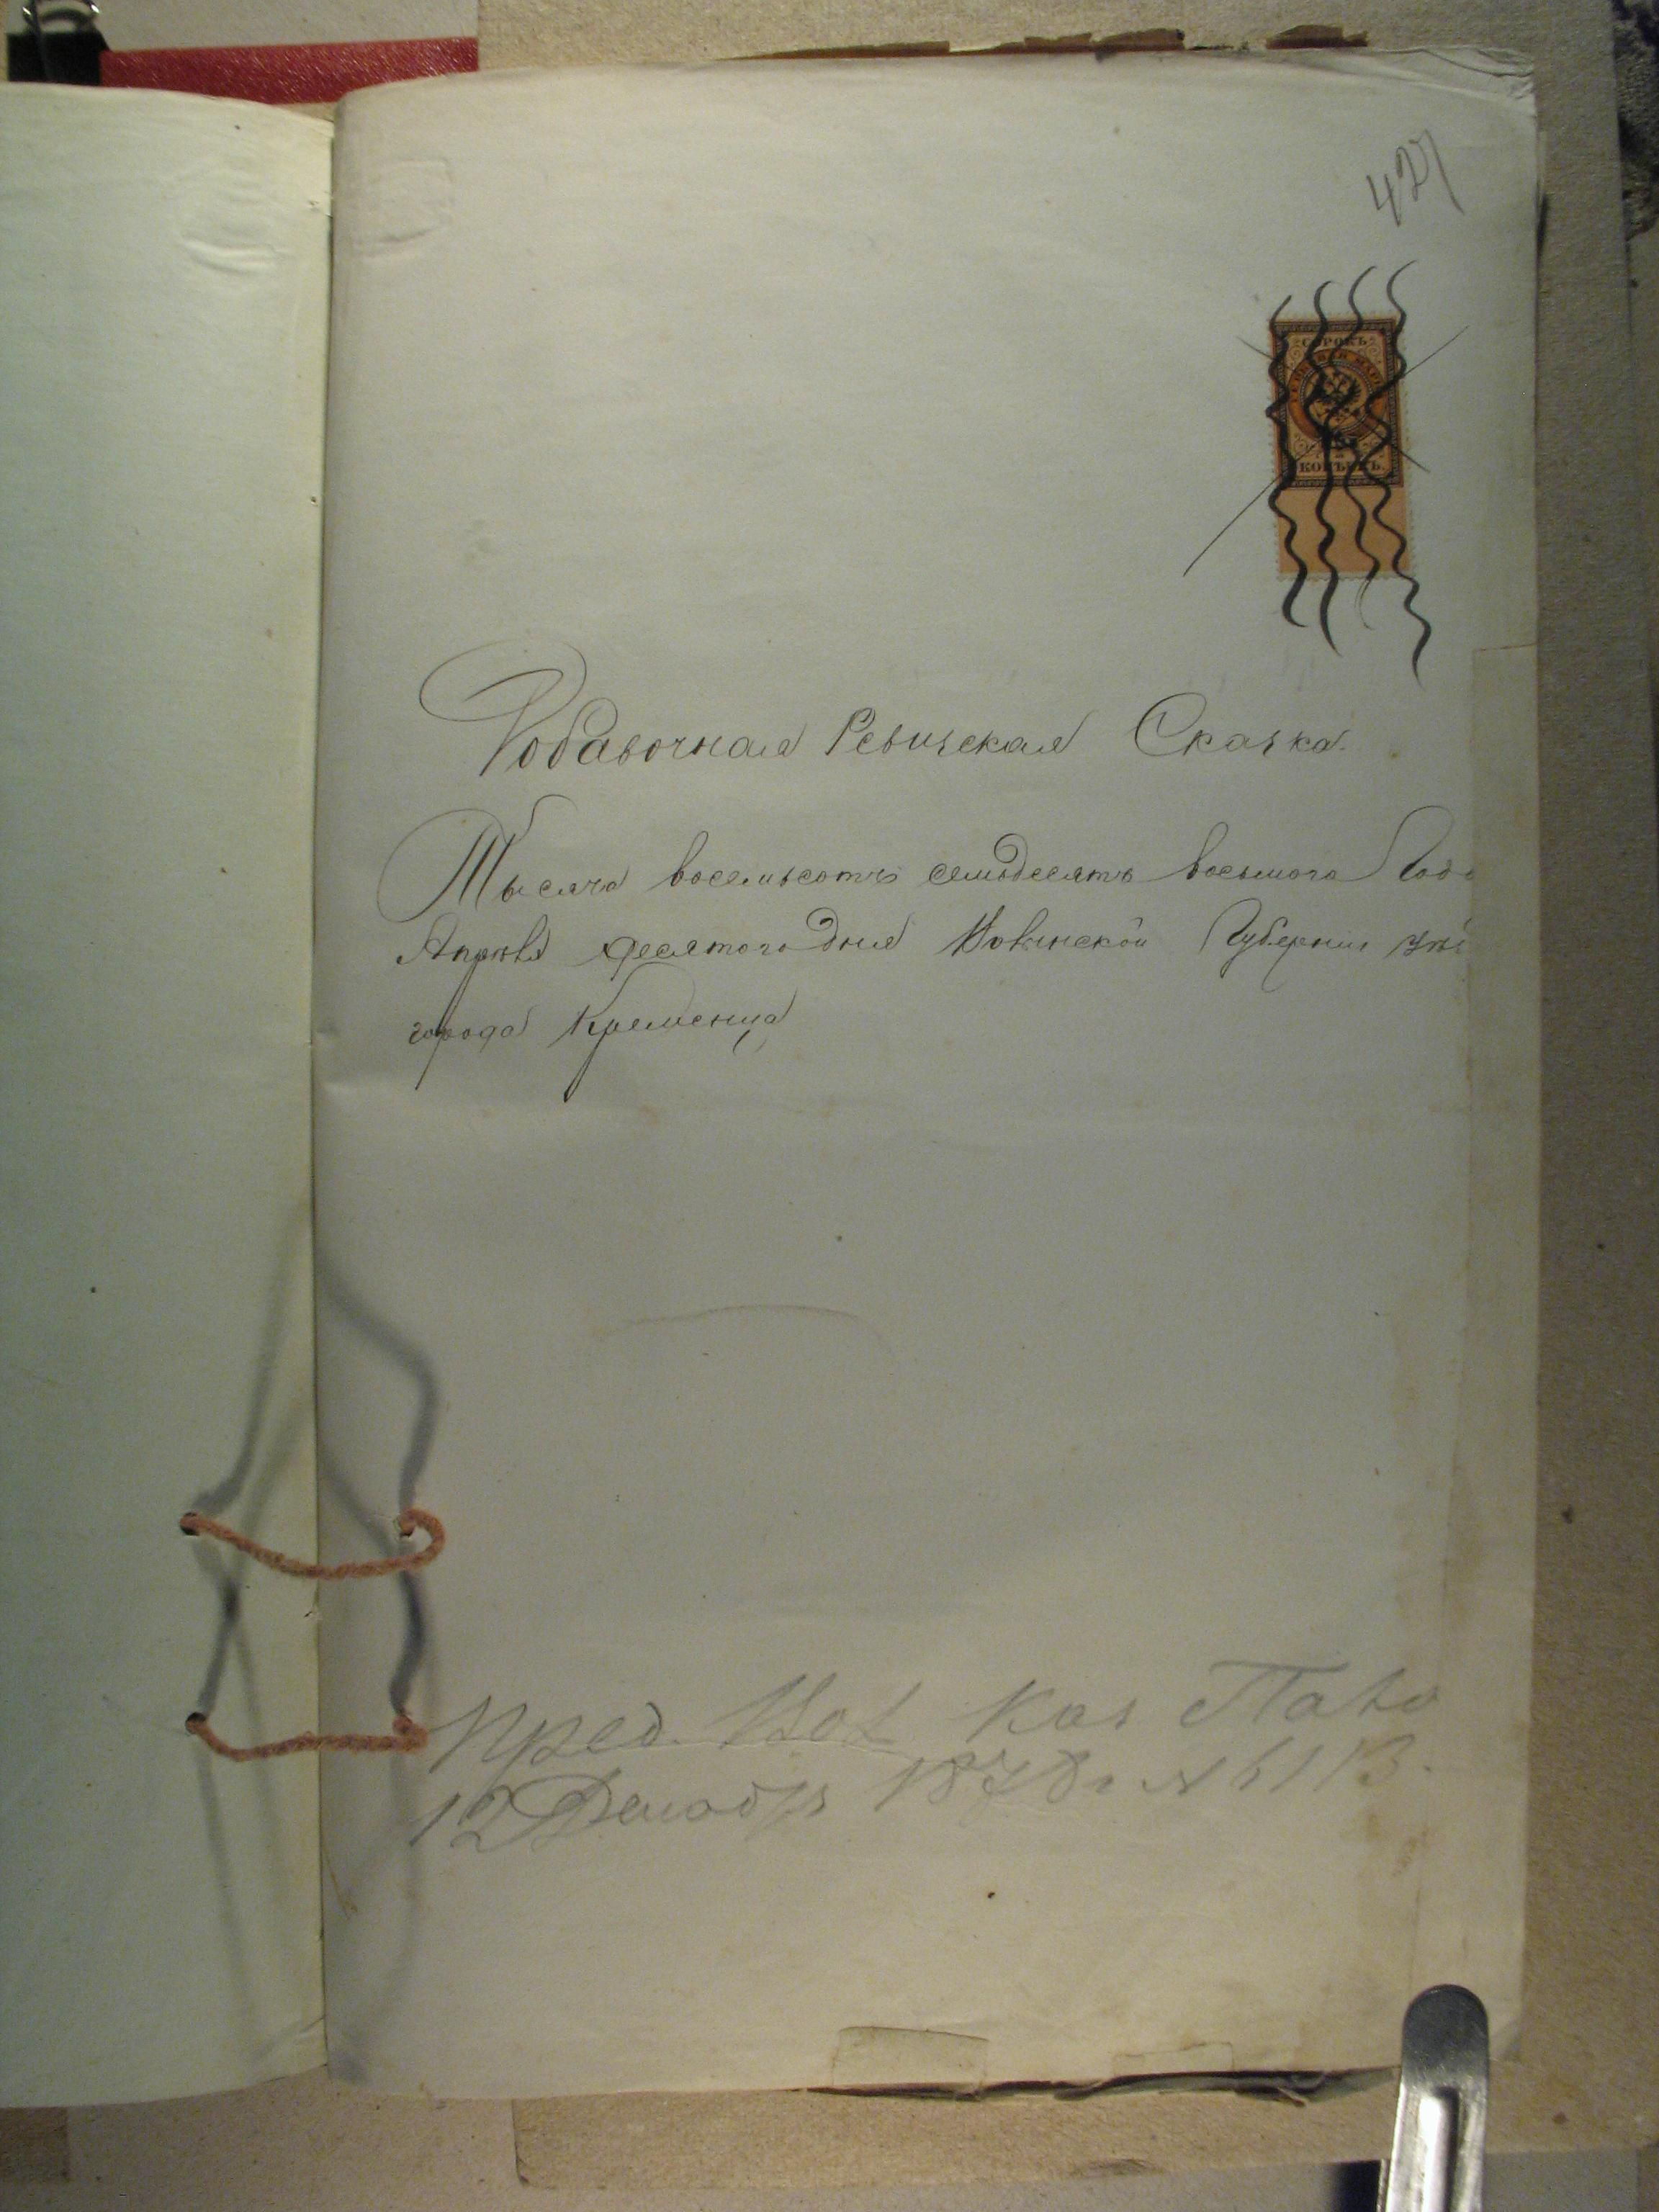 427
СОРОКЪ
ГЕРБОВАЯ МАРКА
КОПѢЕКЪ.
Добавочная Ревизская Сказка.
Тысяча восемьсотъ семьдесятъ восьмого Года
Апрѣля десятого дня Волынской Губерніи
города Кременца
Пред. Вол. Каз. Пала
12 Декабр 1878 г. №